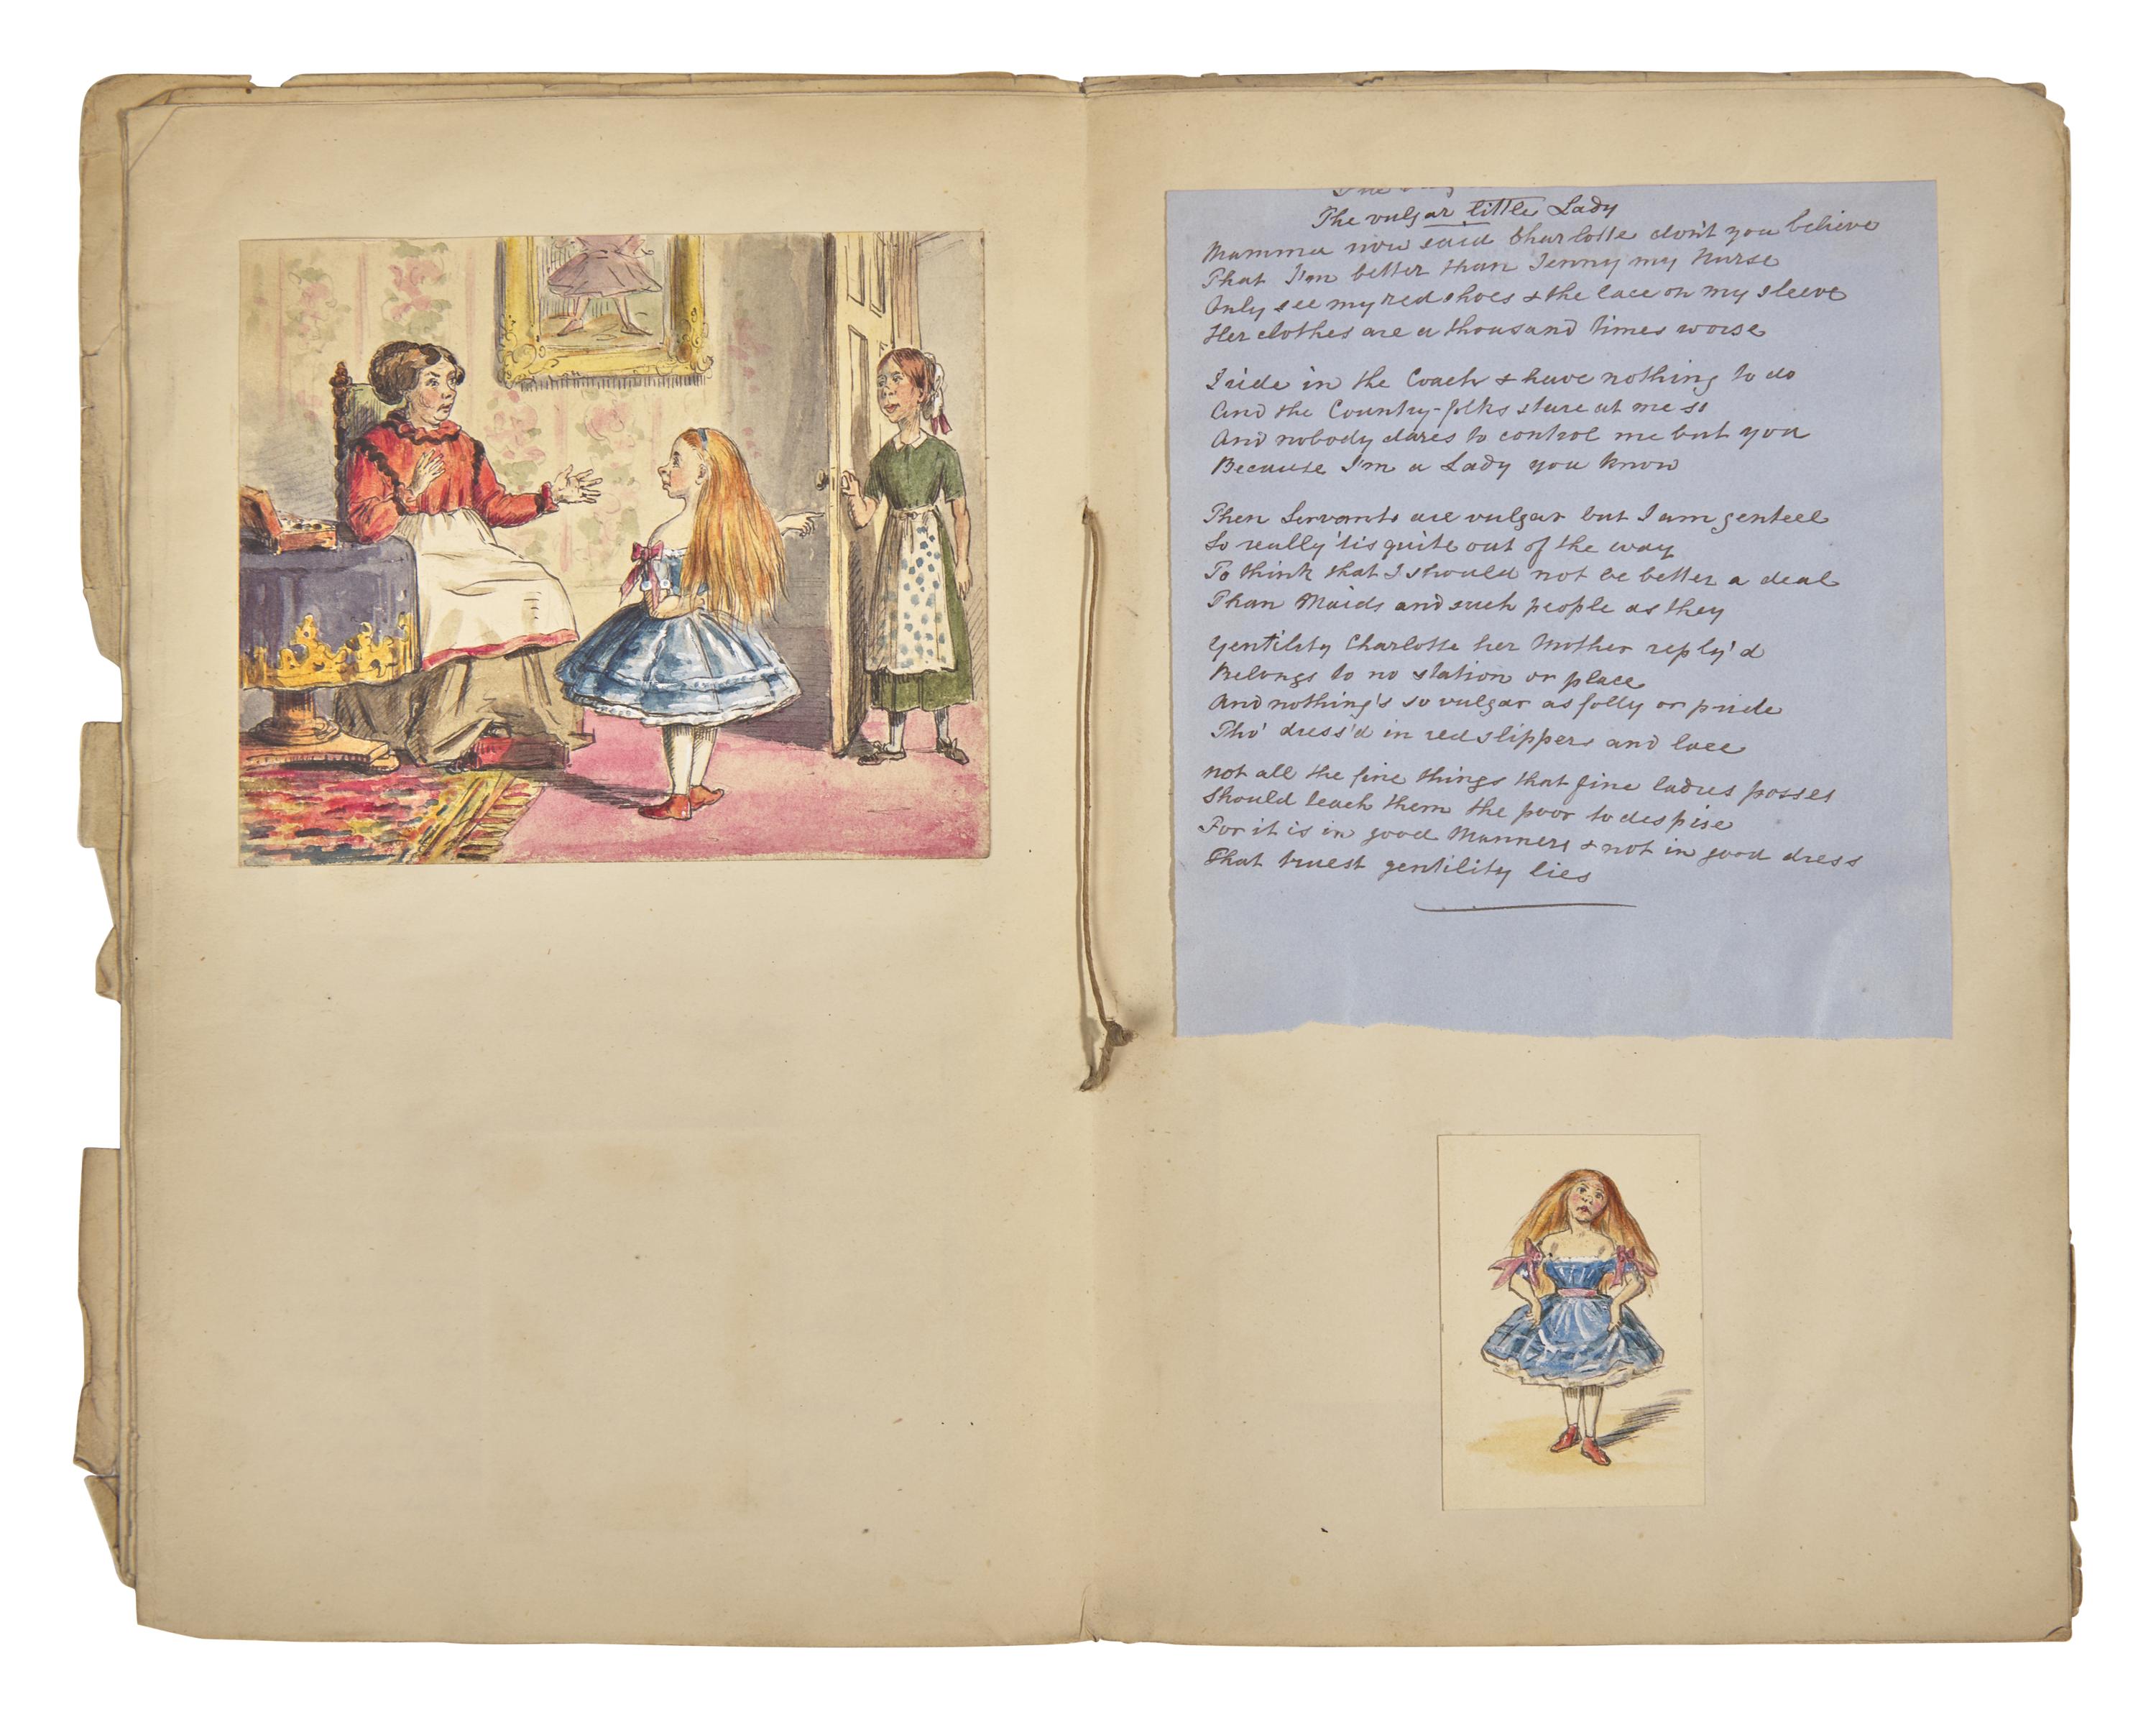 The vulgar little Lady
Mamma now said Charlotte don't you believe
That I'm better than Jenny my Nurse
Only see my red shoes & the lace on my sleeve
Her clothes are a thousand times worse
I ride in the Coach & have nothing to do
And the Country-folks stare at me so
And nobody dares to control me but you
Because I'm a Lady you know
Then Servants are vulgar but I am genteel
So really 'tis quite out of the way
To think that I should not be better a deal
Than Maids and such people as they
Gentility Charlotte her Mother reply'd
Belongs to no station or place
And nothing's so vulgar as folly or pride
Tho' dress'd in red slippers and lace
Not all the fine things that fine ladies posses
Should teach them the poor to despise
For it is in good Manners & not in good dress
That truest gentility lies